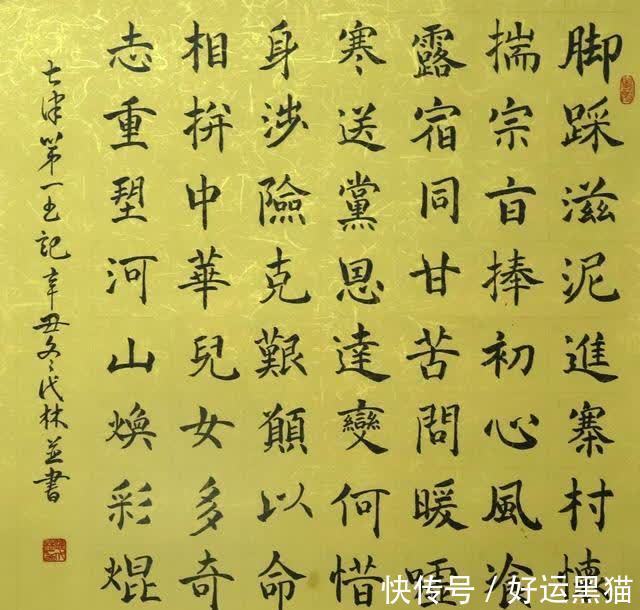 脚踩滋泥進寨村懷
揣宗旨捧初心風飡
露宿同甘苦問暖噓
寒送黨恩達變何惜
身涉險克艱願以命
相拚中華兒女多奇
志重塑河山煥彩焜
七律第一书記辛丑冬代林並書
快传号 / 好运黑猫